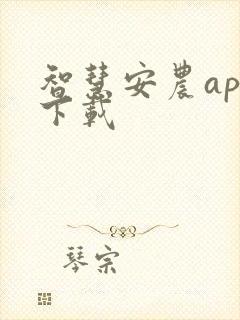 智慧安農ap
下載
琴宗